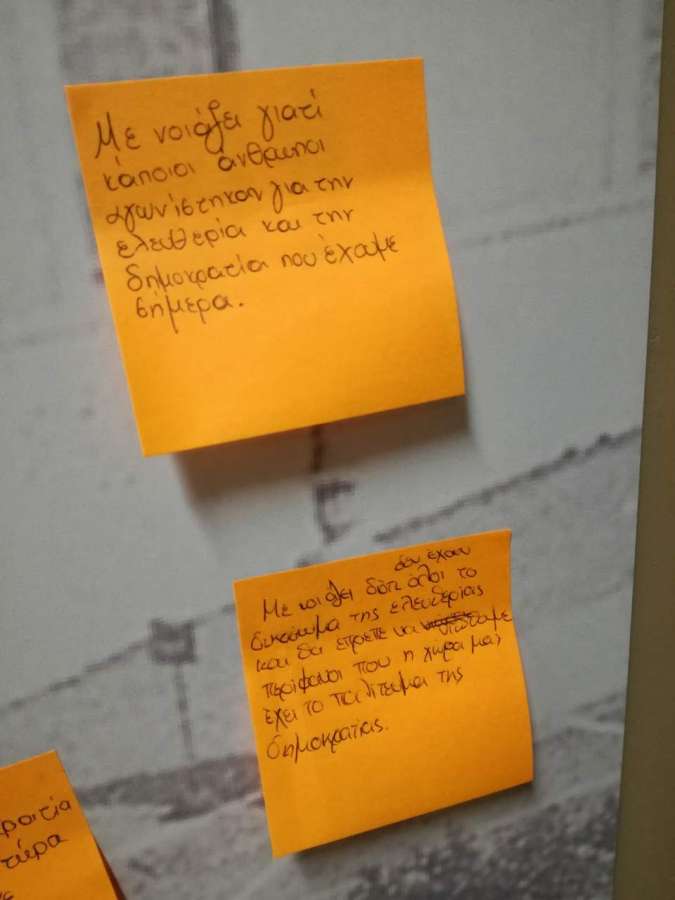 Με νοιάζει γιατί
κάποιοι άνθρωποι
αγωνίστηκαν για την
ελευθερία και την
δημοκρατία που έχουμε
σήμερα.
δεν έχουν
Με νοιάζει διότι όλοι το
δικαίωμα της ελευθερίας
και θα έπρεπε να νιώθουμε
περίφανοι που η χώρα μας
έχει το πολίτευμα της
δημοκρατίας.
τώρα